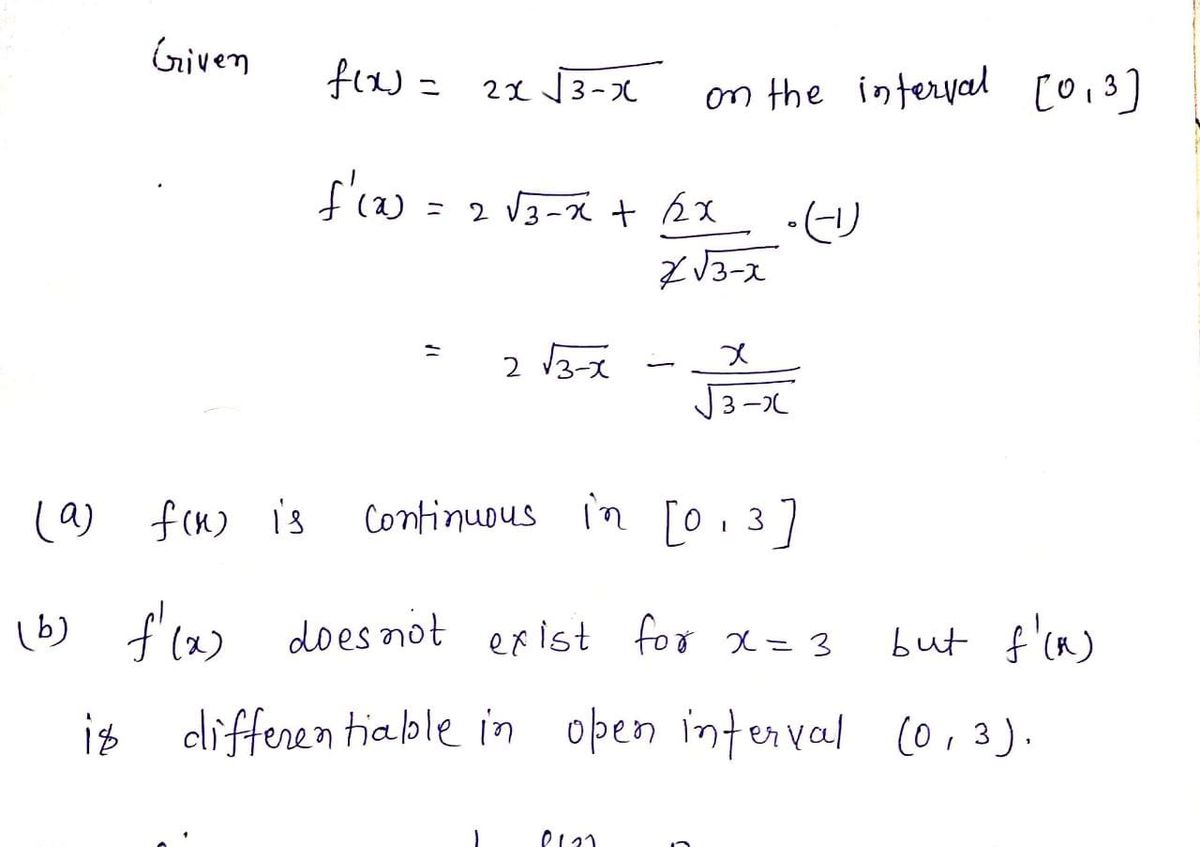 Given f(x) = 2x √3-x on the interval [0,3]
f'(x) = 2 √3-x + 2x / 2√3-x · (-1)
= 2 √3-x - x / √3-x
(a) f(x) is continuous in [0,3]
(b) f'(x) does not exist for x = 3 but f'(x)
is differentiable in open interval (0,3).